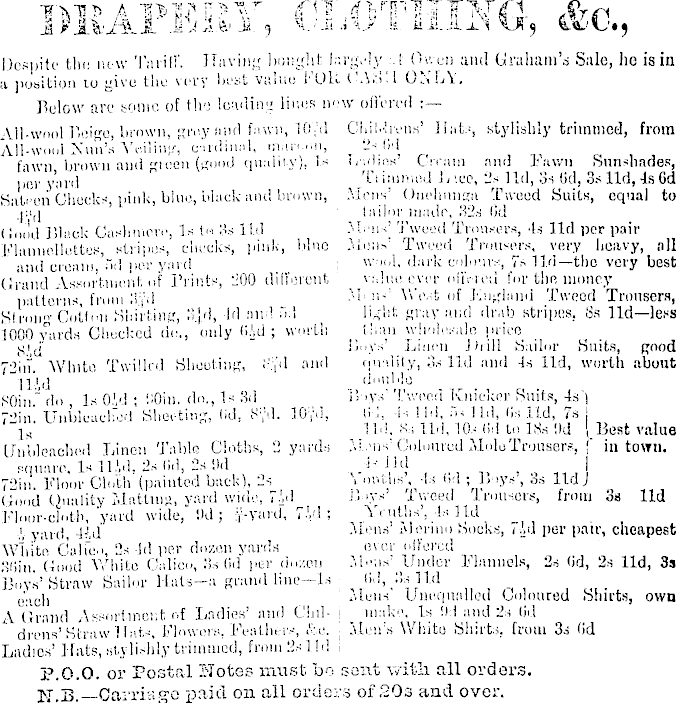 DRAPERY, CLOTHING, &c.,
Despite the new Tariff. Having bought largely at Owen and Graham's Sale, he is in
a position to give the very best value FOR CASH ONLY.
Below are some of the leading lines now offered :—
All-wool Beige, brown, grey and fawn, 10½d
All-wool Nun's Veiling, cardinal, maroon,
fawn, brown and green (good quality), 1s
per yard
Sateen Checks, pink, blue, black and brown,
Good Black Cashmere, 1s to 3s 11d
Flannellettes, stripes, checks, pink, blue
and cream, 5d per yard
Grand Assortment of Prints, 200 different
patterns, from
Strong Cotton Shirting, 4d and 5d
1000 yards Checked do., only 6½d ; worth
8½d
72in. White Twilled Sheeting, and
11½d
80in. do , 1s 0½d ; 90in. do., 1s 3d
72in. Unbleached Sheeting, 6d, 10½d,
1s
Unbleached Linen Table Cloths, 2 yards
square, 1s 11½d, 2s 6d, 2s 9d
72in. Floor Cloth (painted back), 2s
Good Quality Matting, yard wide, 7½d
Floor-cloth, yard wide, 9d ; ¾-yard, 7½d ;
½ yard, 4½d
White Calico, 2s 4d per dozen yards
36in. Good White Calico, 3s 6d per dozen
Boys' Straw Sailor Hats—a grand line—1s
each
A Grand Assortment of Ladies' and Chil-
drens' Straw Hats, Flowers, Feathers, &c.
Ladies' Hats, stylishly trimmed, from 2s 11d
Childrens' Hats, stylishly trimmed, from
2s 6d
Ladies' Cream and Fawn Sunshades,
Trimmed Lace, 2s 11d, 3s 6d, 3s 11d, 4s 6d
Mens' Onehunga Tweed Suits, equal to
tailor made, 32s 6d
Mens' Tweed Trousers, 4s 11d per pair
Mens' Tweed Trousers, very heavy, all
wool, dark colours, 7s 11d—the very best
value ever offered for the money
Mens' West of England Tweed Trousers,
light gray and drab stripes, 8s 11d—less
than wholesale price
Boys' Linen Drill Sailor Suits, good
quality, 3s 11d and 4s 11d, worth about
double
Boys' Tweed Knicker Suits, 4s
6d, 4s 11d, 5s 11d, 6s 11d, 7s
11d, 8s 11d, 10s 6d to 18s 9d
Mens' Coloured Mole Trousers,
4s 11d
Youths', 4s 6d ; Boys', 3s 11d
Best value
in town.
Boys' Tweed Trousers, from 3s 11d
Youths', 4s 11d
Mens' Merino Socks, 7½d per pair, cheapest
ever offered
Mens' Under Flannels, 2s 6d, 2s 11d, 3s
6d, 3s 11d
Mens' Unequalled Coloured Shirts, own
make, 1s 9d and 2s 6d
Men's White Shirts, from 3s 6d
P.O.O. or Postal Notes must be sent with all orders.
N.B.—Carriage paid on all orders of 20s and over.